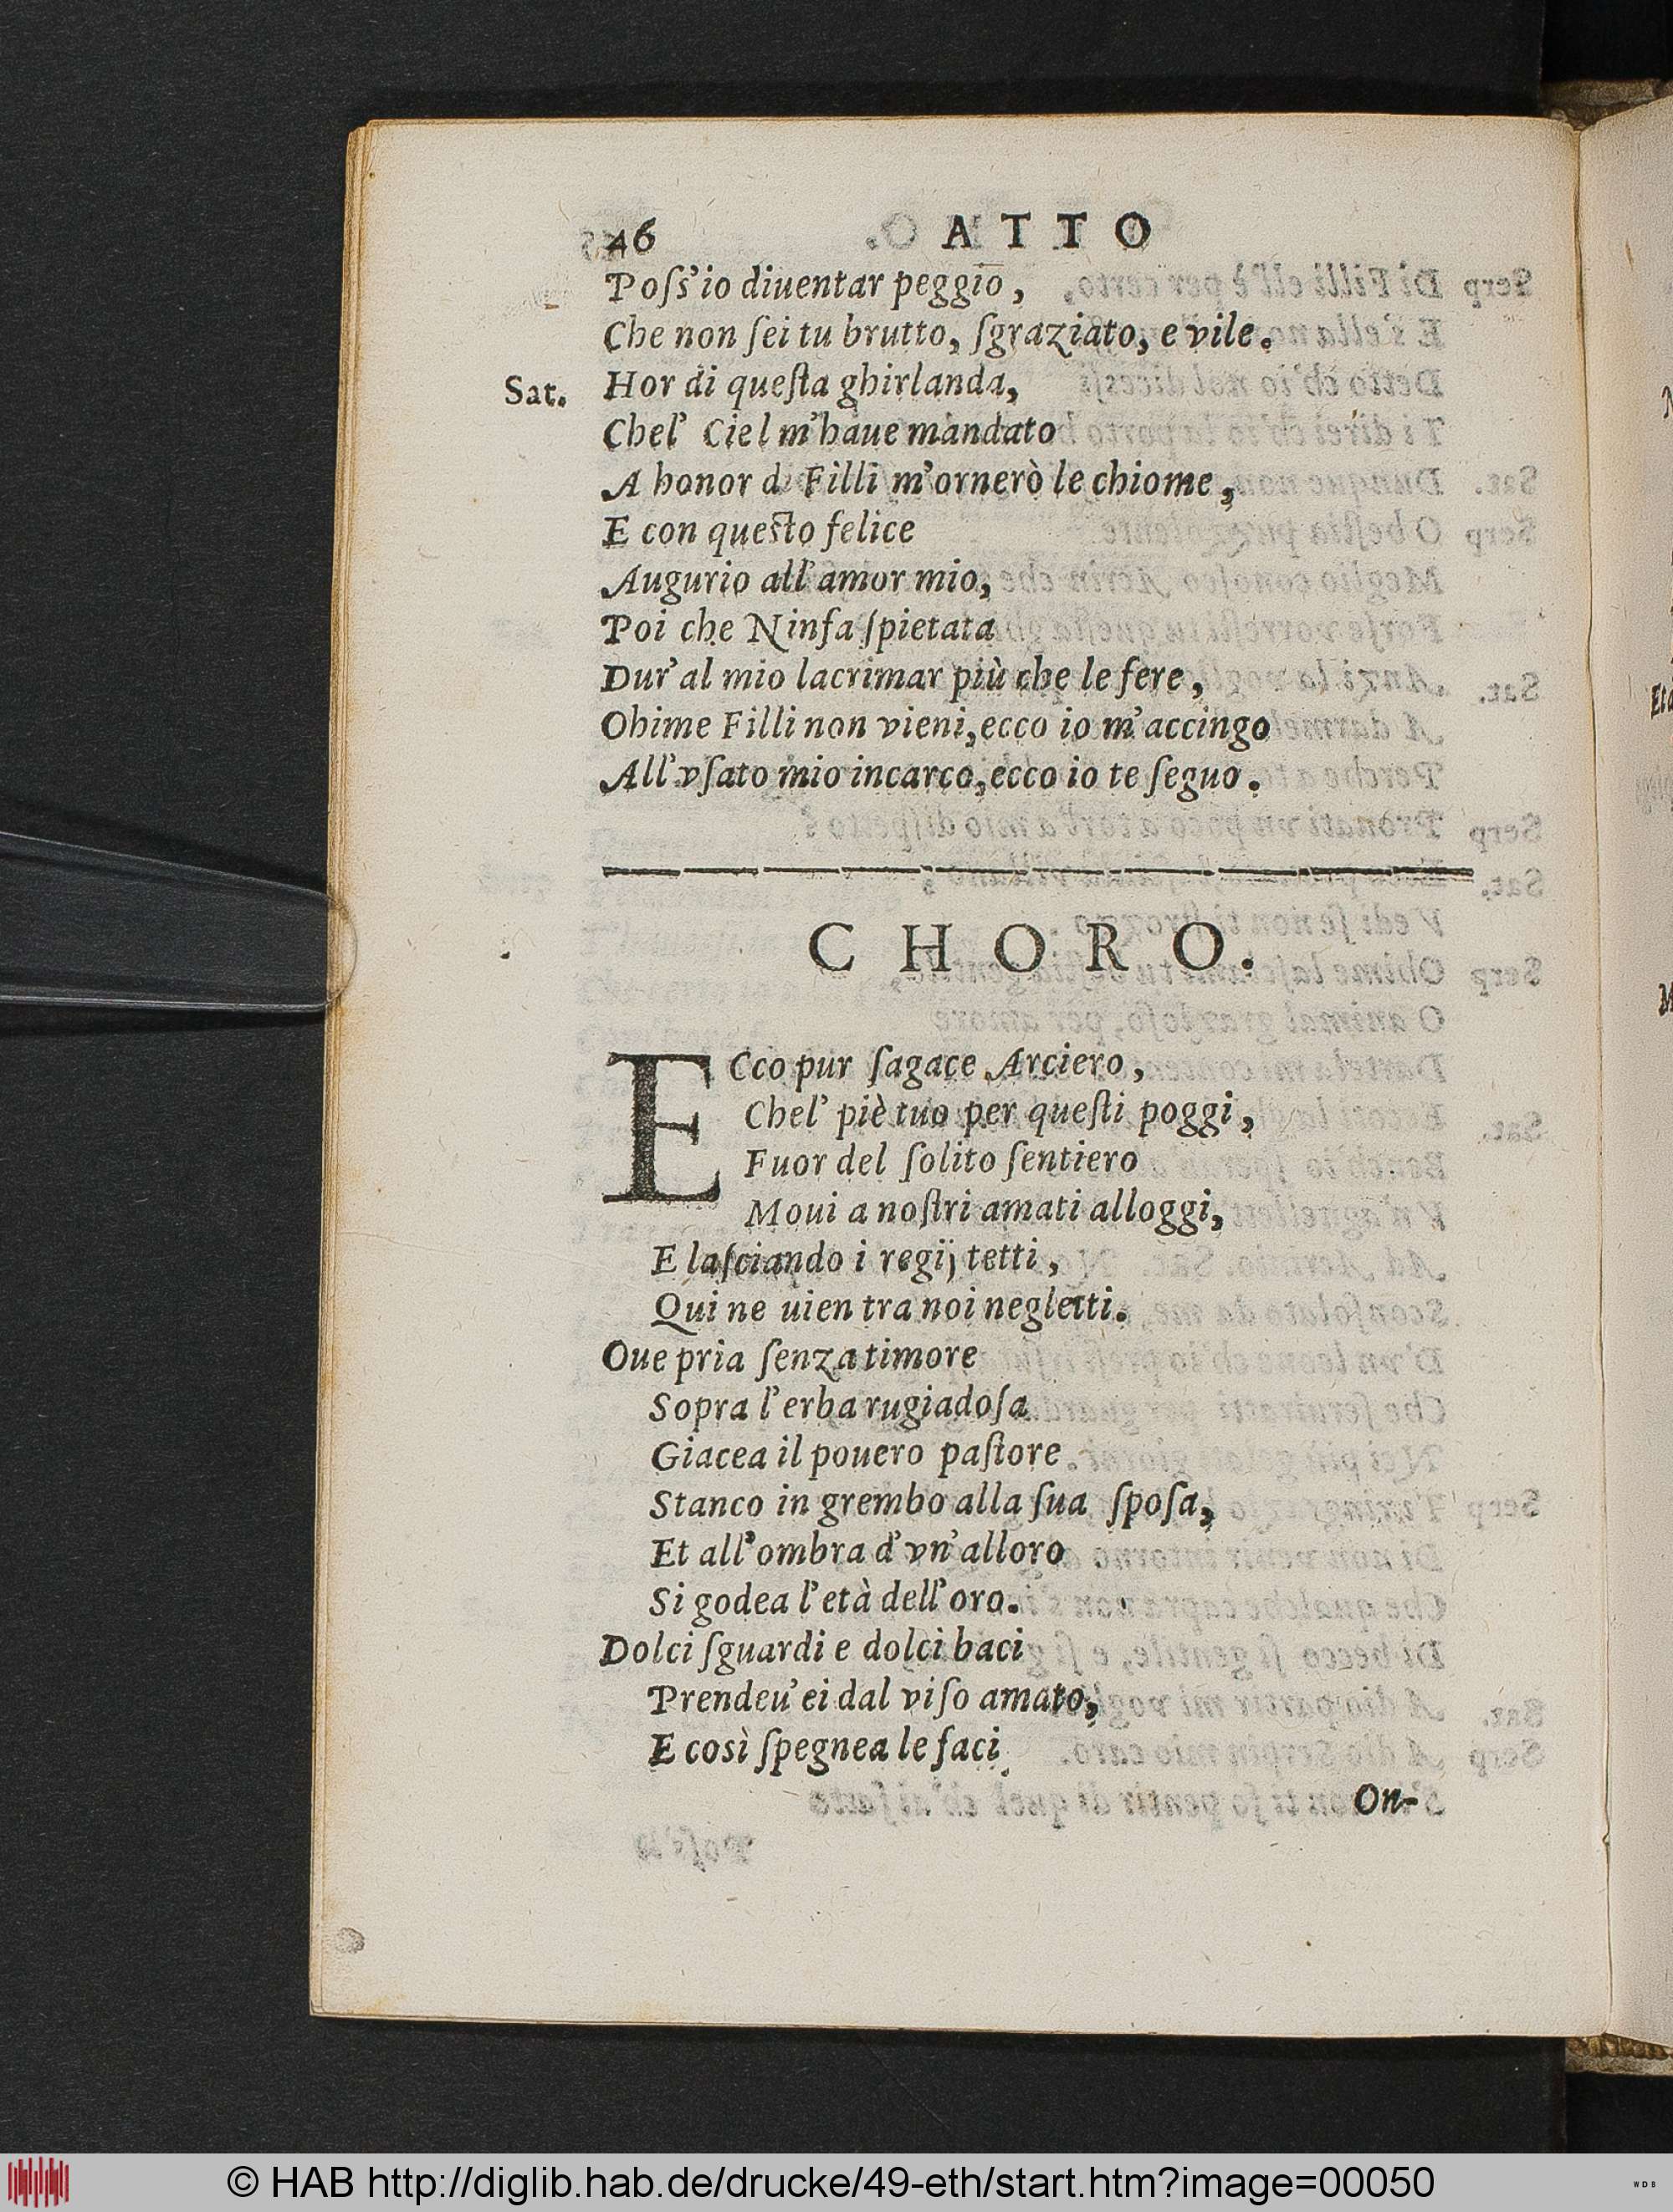 46 ATTO
Poſs'io diuentar peggio,
Che non ſei tu brutto, ſgraziato, e vile.
Sat. Hor di queſta ghirlanda,
Chel' Ciel m'haue mandato
A honor di Filli m'ornerò le chiome,
E con queſto felice
Augurio all'amor mio,
Poi che Ninfa ſpietata
Dur'al mio lacrimar più che le fere,
Ohime Filli non vieni, ecco io m'accingo
All'vſato mio incarco, ecco io te ſeguo.
CHORO.
ECco pur ſagace Arciero,
Chel' piè tuo per queſti poggi,
Fuor del ſolito ſentiero
Moui a noſtri amati alloggi,
E laſciando i regij tetti,
Qui ne uien tra noi negletti.
Oue pria ſenza timore
Sopra l'erba rugiadoſa
Giacea il pouero paſtore
Stanco in grembo alla ſua ſpoſa,
Et all'ombra d'vn'alloro
Si godea l'età dell'oro.
Dolci ſguardi e dolci baci
Prendeu'ei dal viſo amato,
E così ſpegnea le faci
On-
© HAB http://diglib.hab.de/drucke/49-eth/start.htm?image=00050
WDB